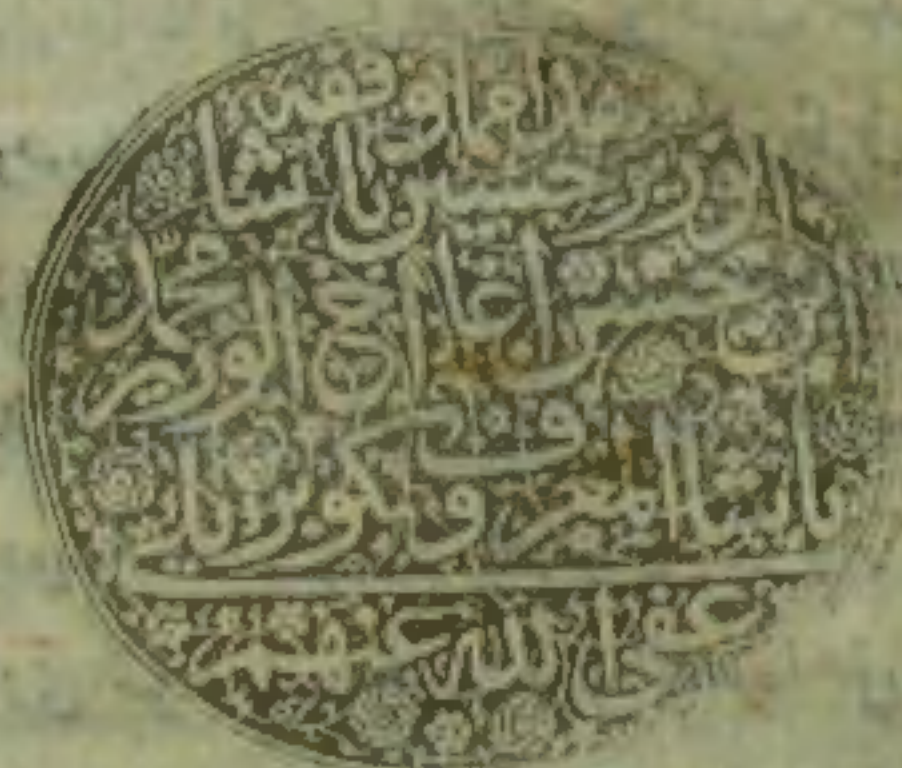 هذا مما وقفه
الوزير حسين باشا
بن حسن اغا اخ الوزير محمد
باشا المعروف بكوپريلي
عفى الله عنهم